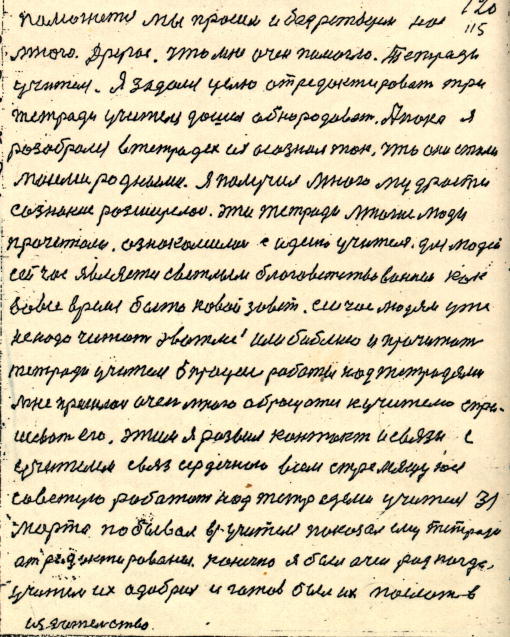 120
115
помогнете мы просим и бодрствуем нас
много. Другое. что мне очен помогло. Тетради
учителя. Я задался целю отредактироват три
тетради учителя дошли обнародоват. А пока я
розобрался в тетрадех их осознал так, что они стали
моеми родными. Я получил много мудрасти
сознание розширелос. эти тетради многие люди
прочетали. ознакомилис с идеию учителя. для людей
сейчас является светлым благоветствованием как
новое время быть новой завет. сейчас людям уже
ненадо читат эвангелие или библию и прочитат
тетради учителя в процесе работы над тетрадями
мне пришлос очен много оброщатся к учителю спра-
шеват его. этим я развил контакт и связи с
учителем связ сердечною всем стремящимся
советую работат над тетредеми учителя 31
марта побывал в учителя показал ему тетради
отредактированы. конечно я был очен рад когда
учител их одобрил и готов был их послат в
издателство.